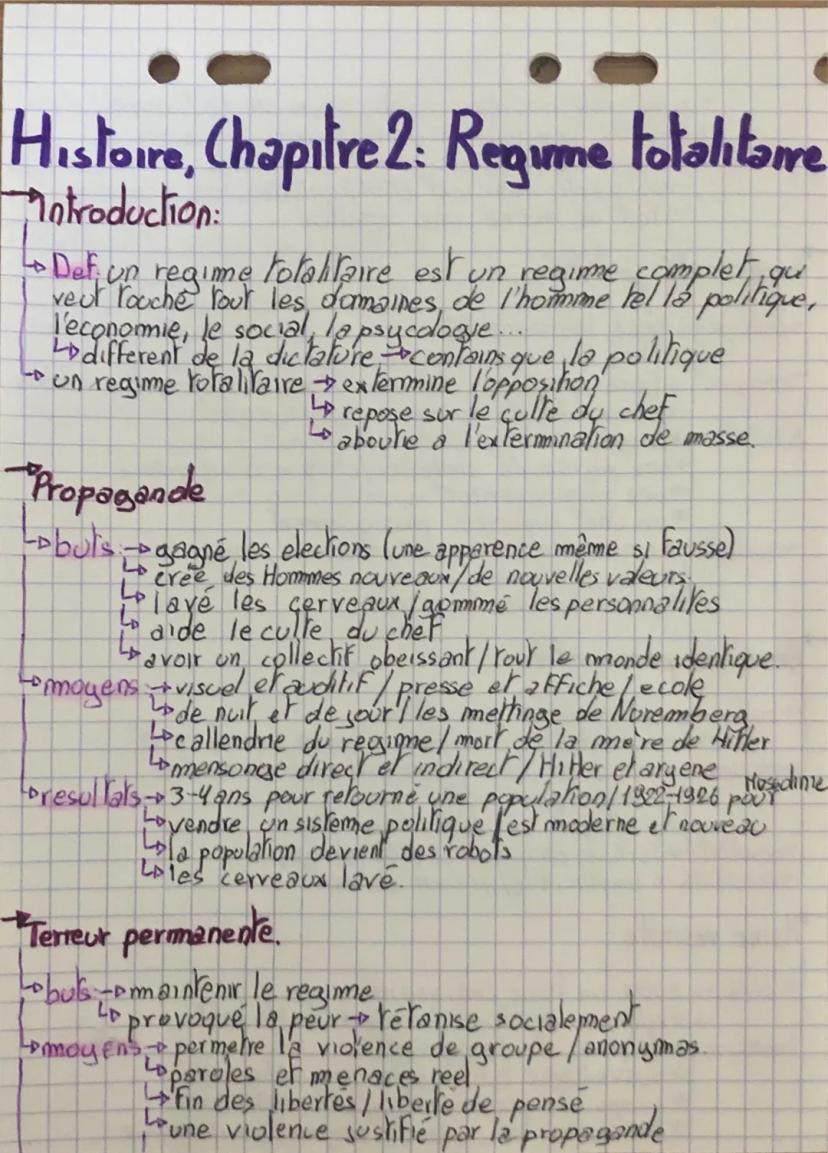 Histoire, Chapitre 2: Regime totalitaire
→ Introduction:
↳ Def: un regime totalitaire est un regime complet, qui
veut touché tout les domaines de l'homme tel la politique,
l'economie, le social, la psycologie...
↳ different de la dictature → contains que la politique
↳ un regime totalitaire → extermine l'opposition
↳ repose sur le culte du chef
↳ aboutie a l'extermination de masse.
→ Propagande
↳ buts → gagné les elections (une apparence même si fausse)
↳ créé des Hommes nouveaux/de nouvelles valeurs.
↳ lavé les cerveaux/gommé les personnalites
↳ aide le culte du chef
↳ avoir un collectif obeissant/tout le monde identique.
↳ moyens → visuel et auditif/presse et affiche/ecole
↳ de nuit et de jour/les mettinge de Nuremberg
↳ callendrie du regime/mort de la mère de Hitler
↳ mensonge direct et indirect/Hitler et aryene
↳ resultats → 3-4 ans pour retourné une population/1922-1926 pour
↳ vendre un sisteme politique/est moderne et nouveau
↳ la population devient des robots
↳ les cerveaux lavé.
→ Terreur permanente.
↳ buts → maintenir le regime
↳ provoqué la peur → tétanise socialement
↳ moyens → permetre la violence de groupe/anonymas.
↳ paroles et menaces reel
↳ fin des libertés/liberté de pensé
↳ une violence justifié par la propagande